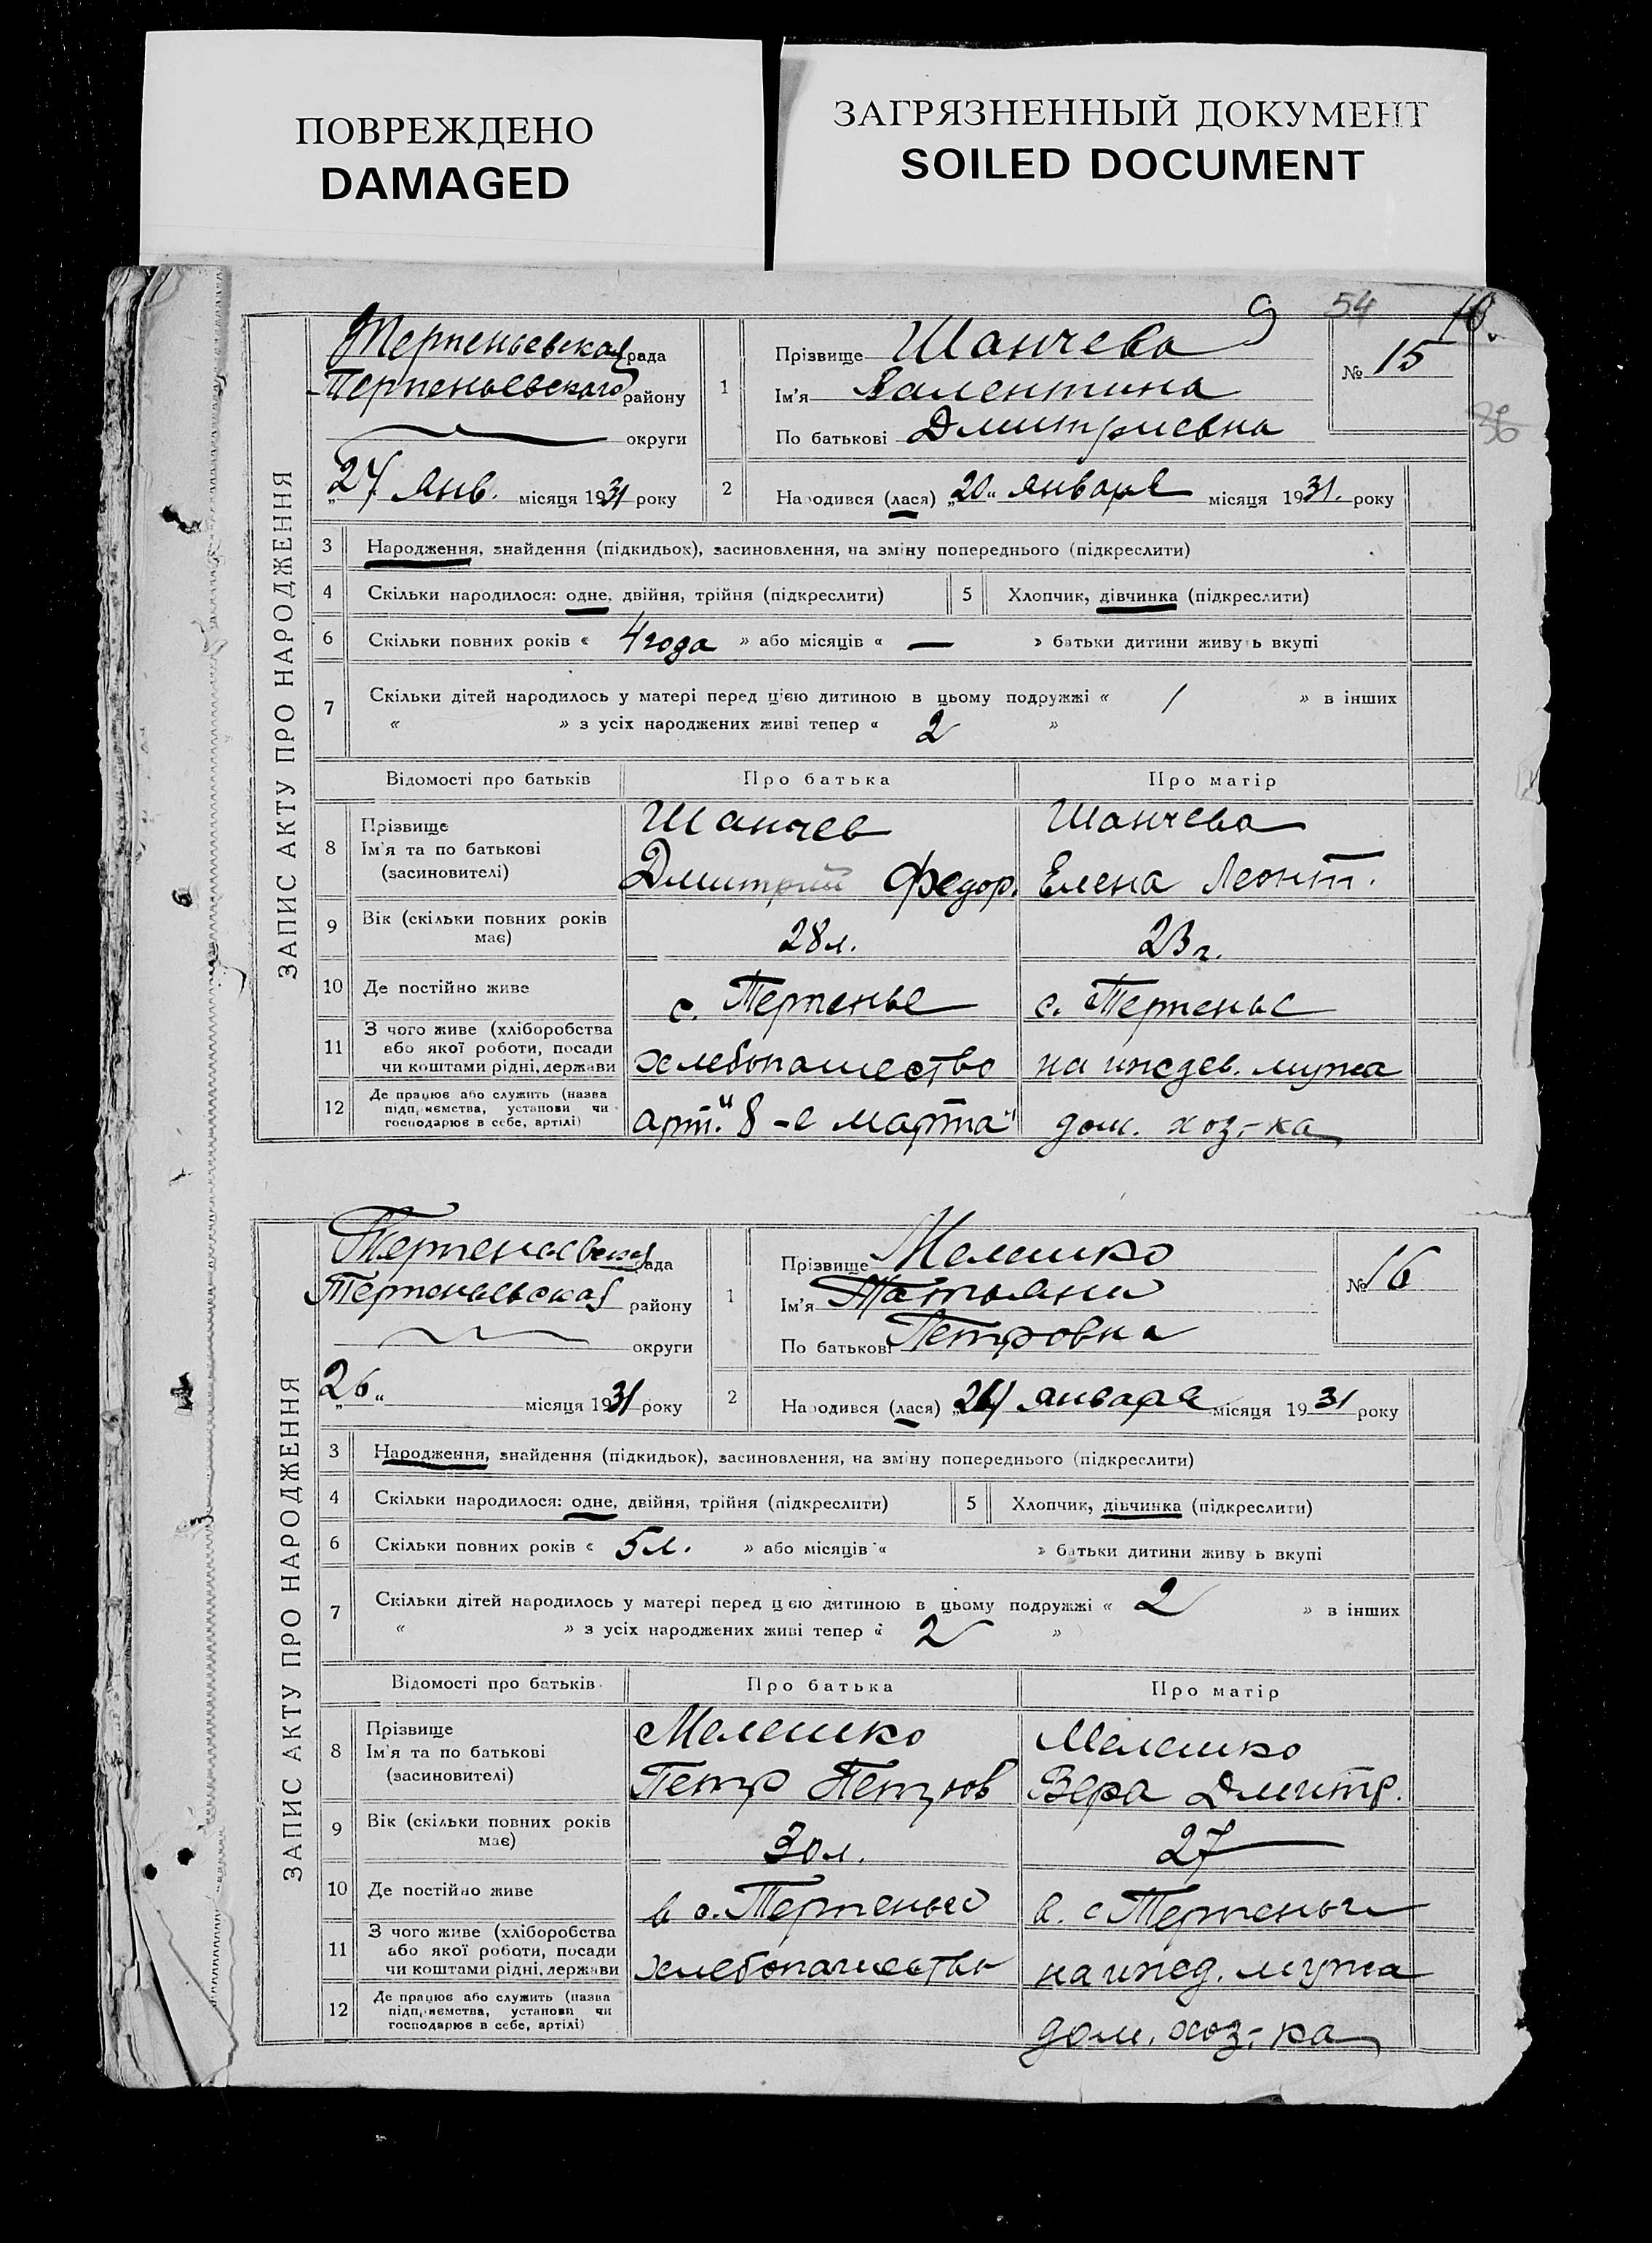 ПОВРЕЖДЕНО
DAMAGED
ЗАГРЯЗНЕННЫЙ ДОКУМЕНТ
SOILED DOCUMENT
9 54
ЗАПИС АКТУ ПРО НАРОДЖЕННЯ
Терпеньевская рада
Терпеньевского району
округи
„24" янв. місяця 1931 року
1
Прізвище Шанчева
Ім'я Валентина
По батькові Дмитриевна
№ 15
2 Народився (лася) „20" января місяця 1931. року
3 Народження, знайдення (підкидьок), засиновлення, на зміну попереднього (підкреслити)
4 Скільки народилося: одне, двійня, трійня (підкреслити) 5 Хлопчик, дівчинка (підкреслити)
6 Скільки повних років « 4 года » або місяців « — » батьки дитини живуть вкупі
7 Скільки дітей народилось у матері перед цією дитиною в цьому подружжі « 1 » в інших
« » з усіх народжених живі тепер « 2 »
Відомості про батьків Про батька Про матір
8 Прізвище Ім'я та по батькові (засиновителі)
Шанчев Шанчева
Дмитрий Федор. Елена Леонт.
9 Вік (скільки повних років має) 28 л. 23 г.
10 Де постійно живе с. Терпенье с. Терпенье
11 З чого живе (хліборобства або якої роботи, посади чи коштами рідні, держави хлебопашество на иждев. мужа
12 Де працює або служить (назва підприємства, установи чи господарює в себе, артілі) арт. "8-е марта" дом. хоз-ка
ЗАПИС АКТУ ПРО НАРОДЖЕННЯ
Терпеньевская рада
Терпеньевская району
округи
„26" місяця 1931 року
1
Прізвище Мелешко
Ім'я Татьяна
По батькові Петровна
№ 16
2 Народився (лася) января місяця 1931 року
3 Народження, знайдення (підкидьок), засиновлення, на зміну попереднього (підкреслити)
4 Скільки народилося: одне, двійня, трійня (підкреслити) 5 Хлопчик, дівчинка (підкреслити)
6 Скільки повних років « 5 л. » або місяців « » батьки дитини живуть вкупі
7 Скільки дітей народилось у матері перед цією дитиною в цьому подружжі « 2 » в інших
« » з усіх народжених живі тепер « 2 »
Відомості про батьків Про батька Про матір
8 Прізвище Ім'я та по батькові (засиновителі)
Мелешко Мелешко
Петр Петров Вера Дмитр.
9 Вік (скільки повних років має) 30 л. 27
10 Де постійно живе в с. Терпенье в. с Терпенье
11 З чого живе (хліборобства або якої роботи, посади чи коштами рідні, держави хлебопашество на ижед. мужа
12 Де працює або служить (назва підприємства, установи чи господарює в себе, артілі) дом. хоз-ка